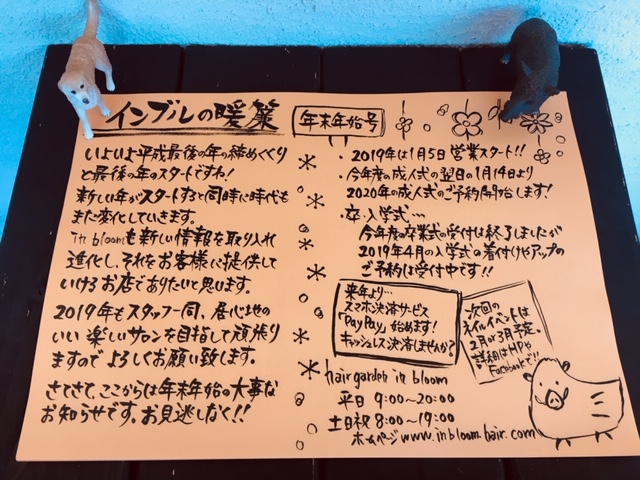 インブルの暖簾
年末年始号
いよいよ平成最後の年の締めくくり
と最後の年のスタートですね!
新しい年がスタートすると同時に時代も
また変化していきます。
in bloomも新しい情報を取り入れ
進化し、それをお客様に提供して
いけるお店でありたいと思います。
2019年もスタッフ一同、居心地の
いい楽しいサロンを目指して頑張り
ますのでよろしくお願い致します。
さてさて、ここからは年末年始の大事な
お知らせです、お見逃しなく!!
・2019年は1月5日営業スタート!!
・今年度の成人式の翌日の1月14日より
2020年の成人式のご予約開始します!
・卒・入学式…
今年度の卒業式の受付は終了しましたが
2019年4月の入学式の着付けやアップの
ご予約は受付中です!!
来年より…
スマホ決済サービス
「PayPay」始めます!
キャッシュレス決済しませんか?
次回の
ネイルイベントは
2月か3月予定。
詳細はHPや
Facebookで!!
hair garden in bloom
平日 9:00~20:00
土日祝 8:00~19:00
ホームページ www.inbloom.hair.com